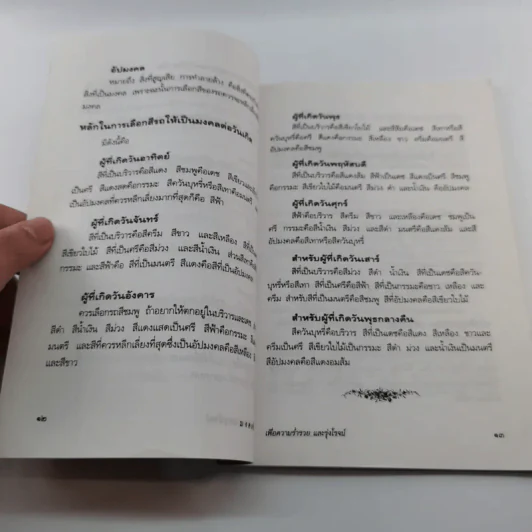 อัปมงคล
หมายถึง สิ่งที่สูญเสีย การทำลายล้าง คือสิ่งที่
สิ่งที่เป็นมงคล เพราะฉะนั้นการเลือกสีของ
มงคล
หลักในการเลือกสีรถให้เป็นมงคลต่อวันเกิด
มีดังนี้คือ
ผู้ที่เกิดวันอาทิตย์
สีที่เป็นบริวารคือสีแดง สีชมพูคือเดช สีเขียว
เป็นศรี สีแดงสดคือกรรมะ สีควันบุหรี่หรือสีเทาคือมนตรี
หลีกเลี่ยงเพราะเป็นอัปมงคลมากที่สุดก็คือ สีฟ้า
ผู้ที่เกิดวันจันทร์
สีที่เป็นบริวารคือสีครีม สีขาว และสีเหลือง
สีเขียวใบไม้ สีที่เป็นศรีคือสีม่วง และสีน้ำเงิน ส่วนสี
กรรมะ และสีฟ้าคือ สีที่เป็นมนตรี สีแดงคือสีที่เป็นอัปมงคล
ผู้ที่เกิดวันอังคาร
ควรเลือกรถสีชมพู ถ้าอยากให้ตกอยู่ในบริวารและเดช
สีดำ สีน้ำเงิน สีม่วง สีแดงแสดเป็นศรี สีฟ้าคือกรรมะ
มนตรี และสีที่ควรหลีกเลี่ยงที่สุดซึ่งเป็นอัปมงคลคือสีเหลือง
และสีขาว
๑๒
ผู้ที่เกิดวันพุธ
สีที่เป็นบริวารคือสีเขียวใบไม้ และสีส้มคือเดช สีเทาหรือสี
ควันบุหรี่คือศรี สีแดงคือกรรมะ สีเหลือง ขาว ครีมคือมนตรี สี
อัปมงคลคือสีชมพู
ผู้ที่เกิดวันพฤหัสบดี
สีที่เป็นบริวารคือสีแสด สีฟ้าเป็นเดช สีแดงเป็นศรี สีชมพู
คือกรรมะ สีเขียวใบไม้คือมนตรี สีม่วง ดำ และน้ำเงิน คืออัปมงคล
ผู้ที่เกิดวันศุกร์
สีฟ้าคือบริวาร สีครีม สีขาว และเหลืองคือเดช ชมพูเป็น
ศรี กรรมะคือสีน้ำเงิน สีม่วงและสีดำ มนตรีคือสีแดงและสีส้ม
อัปมงคลคือสีเทาหรือสีควันบุหรี่
สำหรับผู้ที่เกิดวันเสาร์
สีที่เป็นบริวารคือสีม่วง สีดำ น้ำเงิน สีที่เป็นเดชคือสีควัน-
บุหรี่หรือสีเทา สีที่เป็นศรีคือสีฟ้า สีที่เป็นกรรมะคือขาว เหลือง และ
ครีม สำหรับสีที่เป็นมนตรีคือสีชมพู สีที่อัปมงคลคือสีเขียวใบไม้
สำหรับผู้ที่เกิดวันพุธกลางคืน
สีควันบุหรี่คือบริวาร สีที่เป็นเดชคือสีแดง สีเหลือง ขาวและ
ครีมเป็นศรี สีเขียวใบไม้เป็นกรรมะ สีดำ ม่วง และน้ำเงินเป็นมนตรี
สีอัปมงคลคือสีแดงอมส้ม
เพื่อความร่ำรวย และรุ่งโรจน์
๑๓